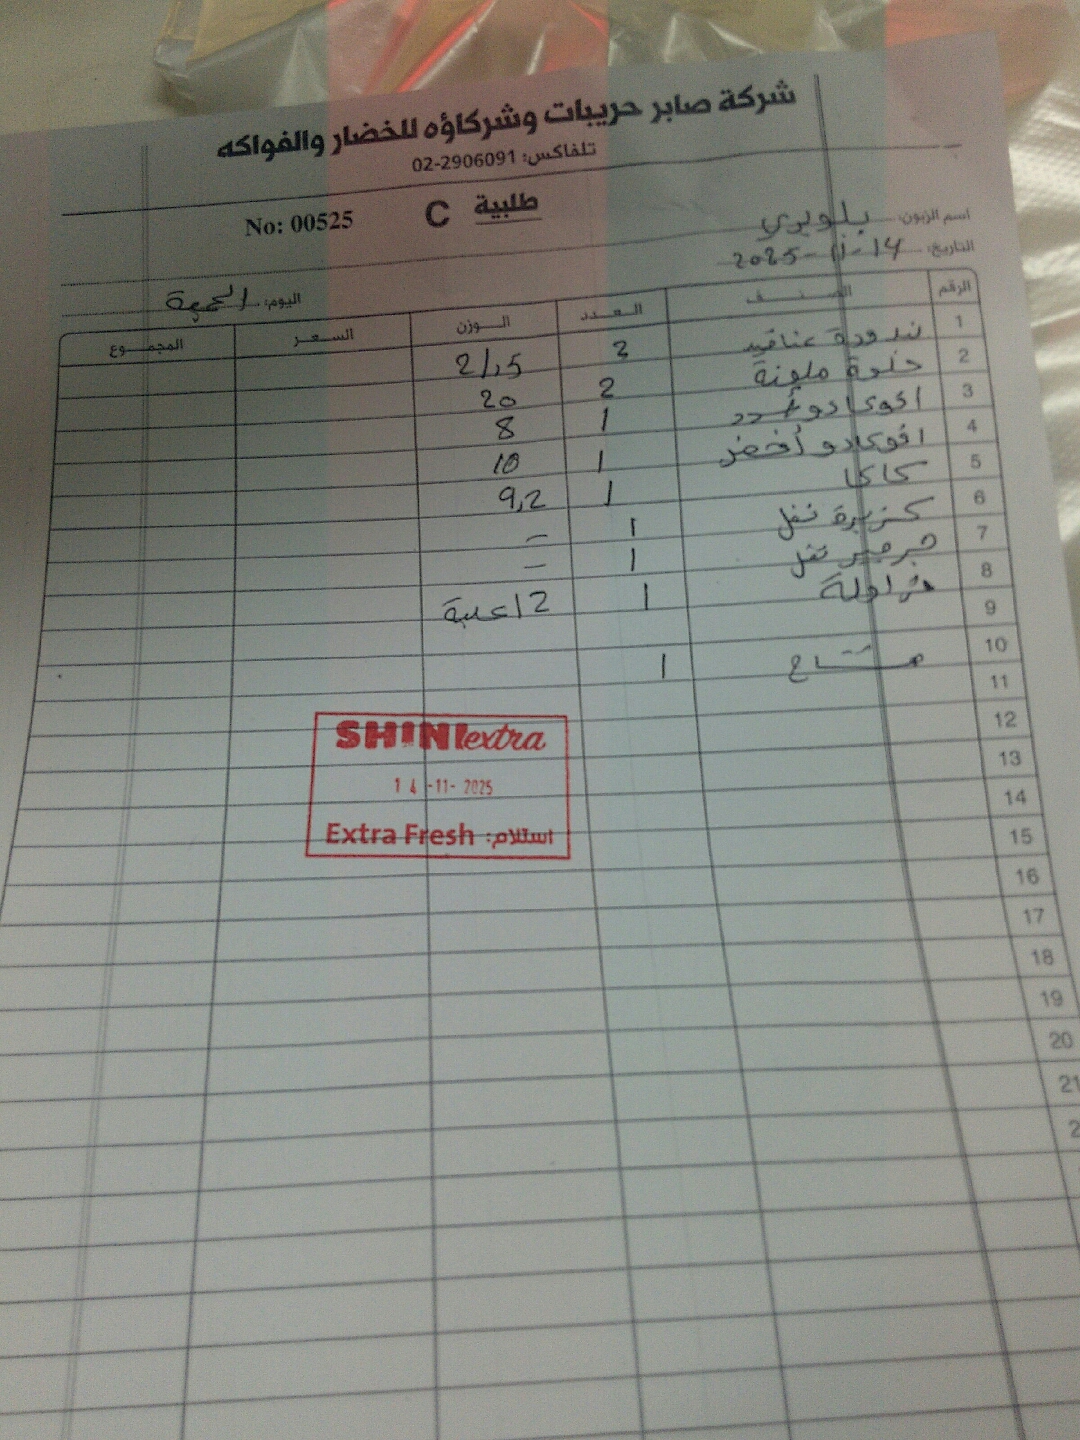 شركة صابر حريبات وشركاؤه للخضار والفواكه
تلفاكس: 02-2906091
طلبية C No: 00525
اسم الزبون: بلويري
التاريخ: 14-11-2025
اليوم: الجمعة
الرقم الصنف العدد الوزن السعر المجموع
1 بندورة عناقيد 2 21,5
2 حلوة ملونة 2 20
3 افوكادو أسود 1 8
4 افوكادو أخضر 1 10
5 كاكا 1 9,2
6 كزبرة نفل 1 –
7 جرجير نفل 1 –
8 فراولة 1 12 علبة
9
10 1
11
12
SHINI extra
13
14-11-2025
14
Extra Fresh استلام:
15
16
17
18
19
20
21
2